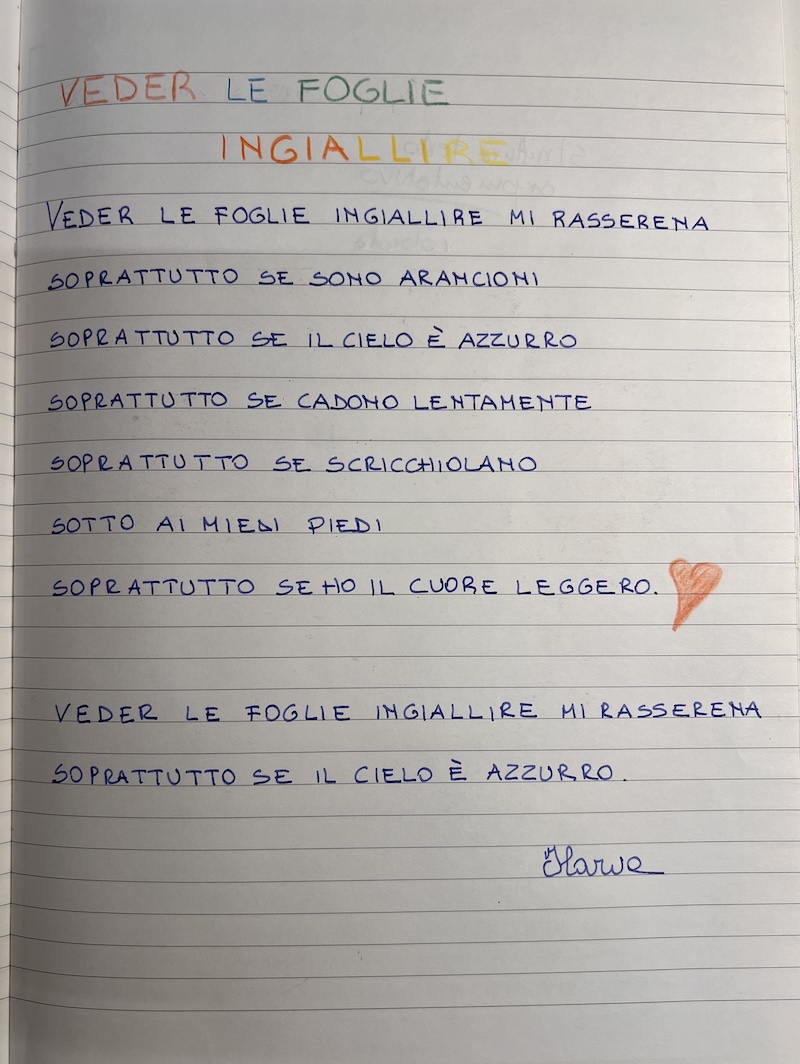 VEDER LE FOGLIE
INGIALLIRE
VEDER LE FOGLIE INGIALLIRE MI RASSERENA
SOPRATTUTTO SE SONO ARANCIONI
SOPRATTUTTO SE IL CIELO È AZZURRO
SOPRATTUTTO SE CADONO LENTAMENTE
SOPRATTUTTO SE SCRICCHIOLANO
SOTTO AI MIEDI PIEDI
SOPRATTUTTO SE HO IL CUORE LEGGERO.
VEDER LE FOGLIE INGIALLIRE MI RASSERENA
SOPRATTUTTO SE IL CIELO È AZZURRO.